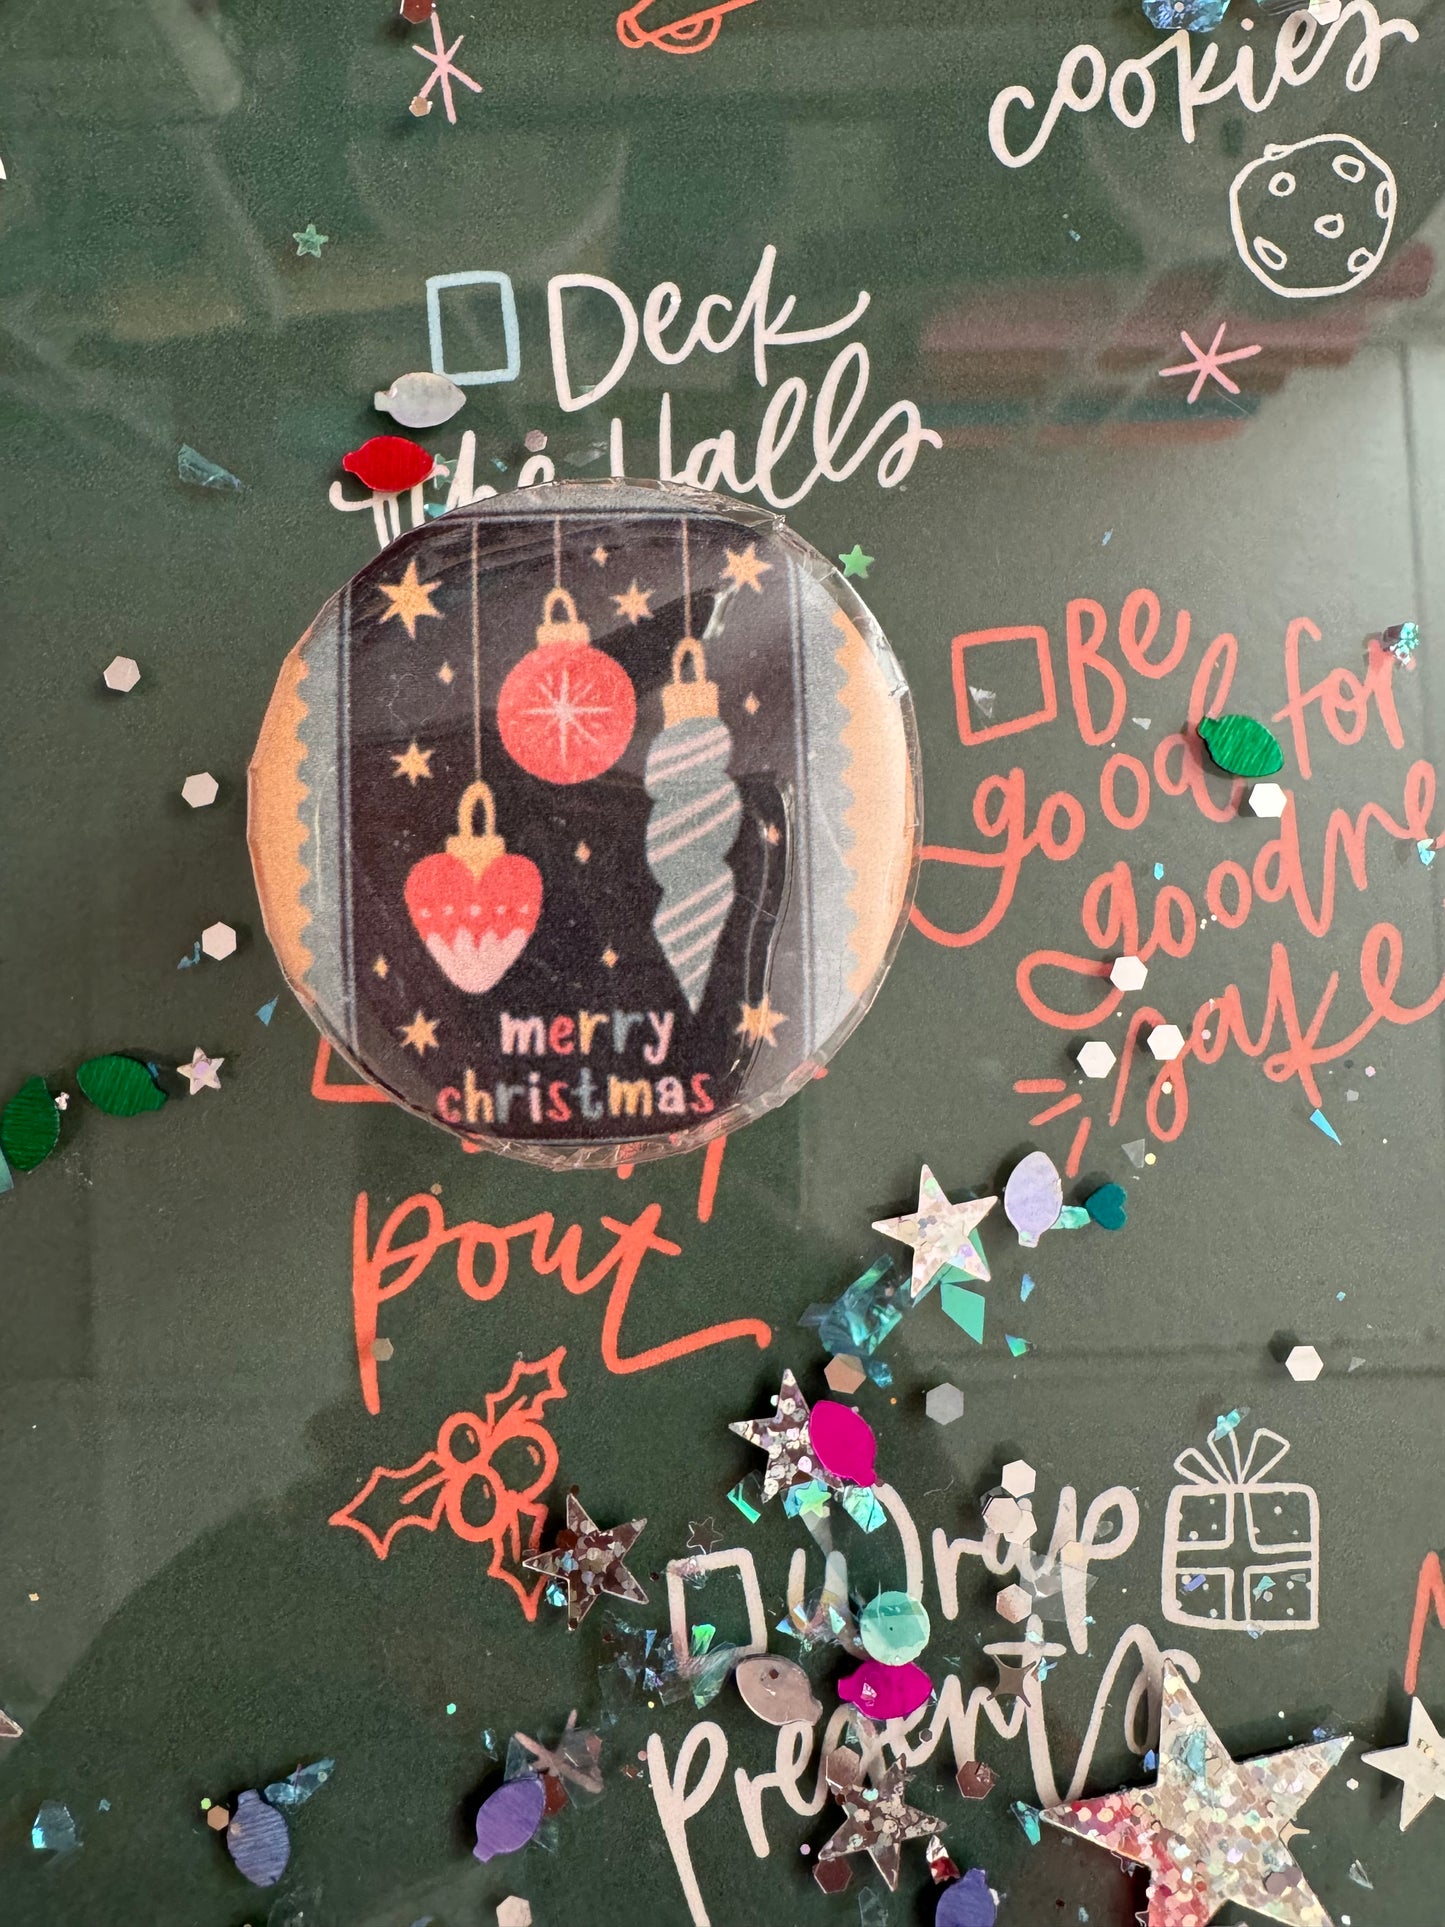 cookies
Deck
the Halls
Be
good for
goodne
sake
merry
christmas
pout
Wrap
presents